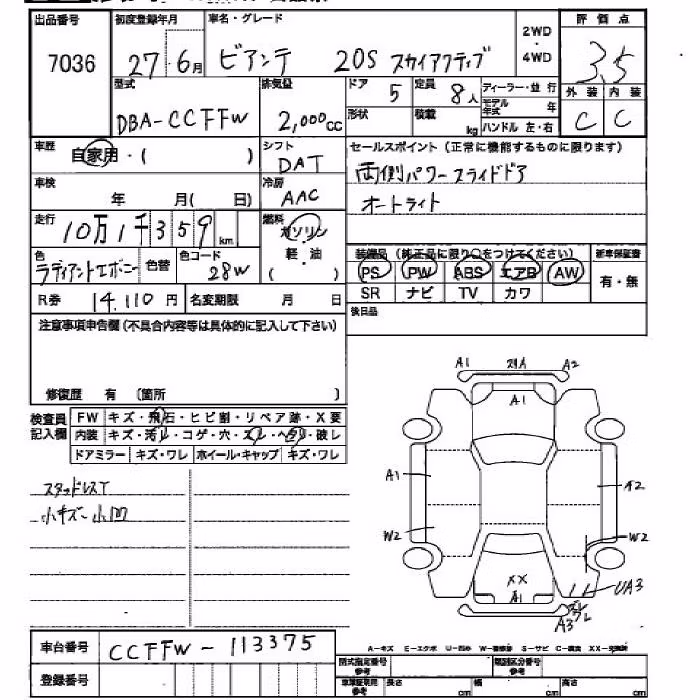 出品番号 初度登録年月 車名・グレード 2WD・4WD 評価点
7036 27・6月 ビアンテ 20S スカイアクティブ 3.5
型式 排気量 ドア 定員 ディーラー・並行 外装 内装
DBA-CCFFW 2,000cc 5 8人 モデル年式 年 C C
形状 積載 kg ハンドル 左・右
車歴 自家用・( ) シフト DAT セールスポイント (正常に機能するものに限ります)
両側パワースライドドア
車検 年 月( 日) 冷房 AAC オートライト
走行 10万1千359km 燃料 ガソリン 軽・油 ( )
装備品 (純正品に限り○をつけてください) 新車保証書
色 ラディアントエボニー 色替 色コード 28W PS PW ABS エアB AW 有・無
R券 14,110円 名変期限 月 日 SR ナビ TV カワ
後日品
注意事項申告欄 (不具合内容等は具体的に記入して下さい)
修復歴 有 〔箇所 〕
検査員記入欄 FW キズ・飛石・ヒビ割・リペア跡・X要
内装 キズ・汚レ・コゲ・穴・スレ・ヘタリ・破レ
ドアミラー キズ・ワレ ホイール・キャップ キズ・ワレ
スタッドレスT
小キズ 小凹
A1 A2
A1
A1 A2
W2 W2
XX UA3
A1
A3
車台番号 CCFFW-113375
登録番号
A-キズ E-エクボ U-凹み S-サビ C-腐食 XX-交換済
型式指定番号 参考 類別区分番号 参考
車検証取得 参考 長さ cm 幅 cm 高さ cm